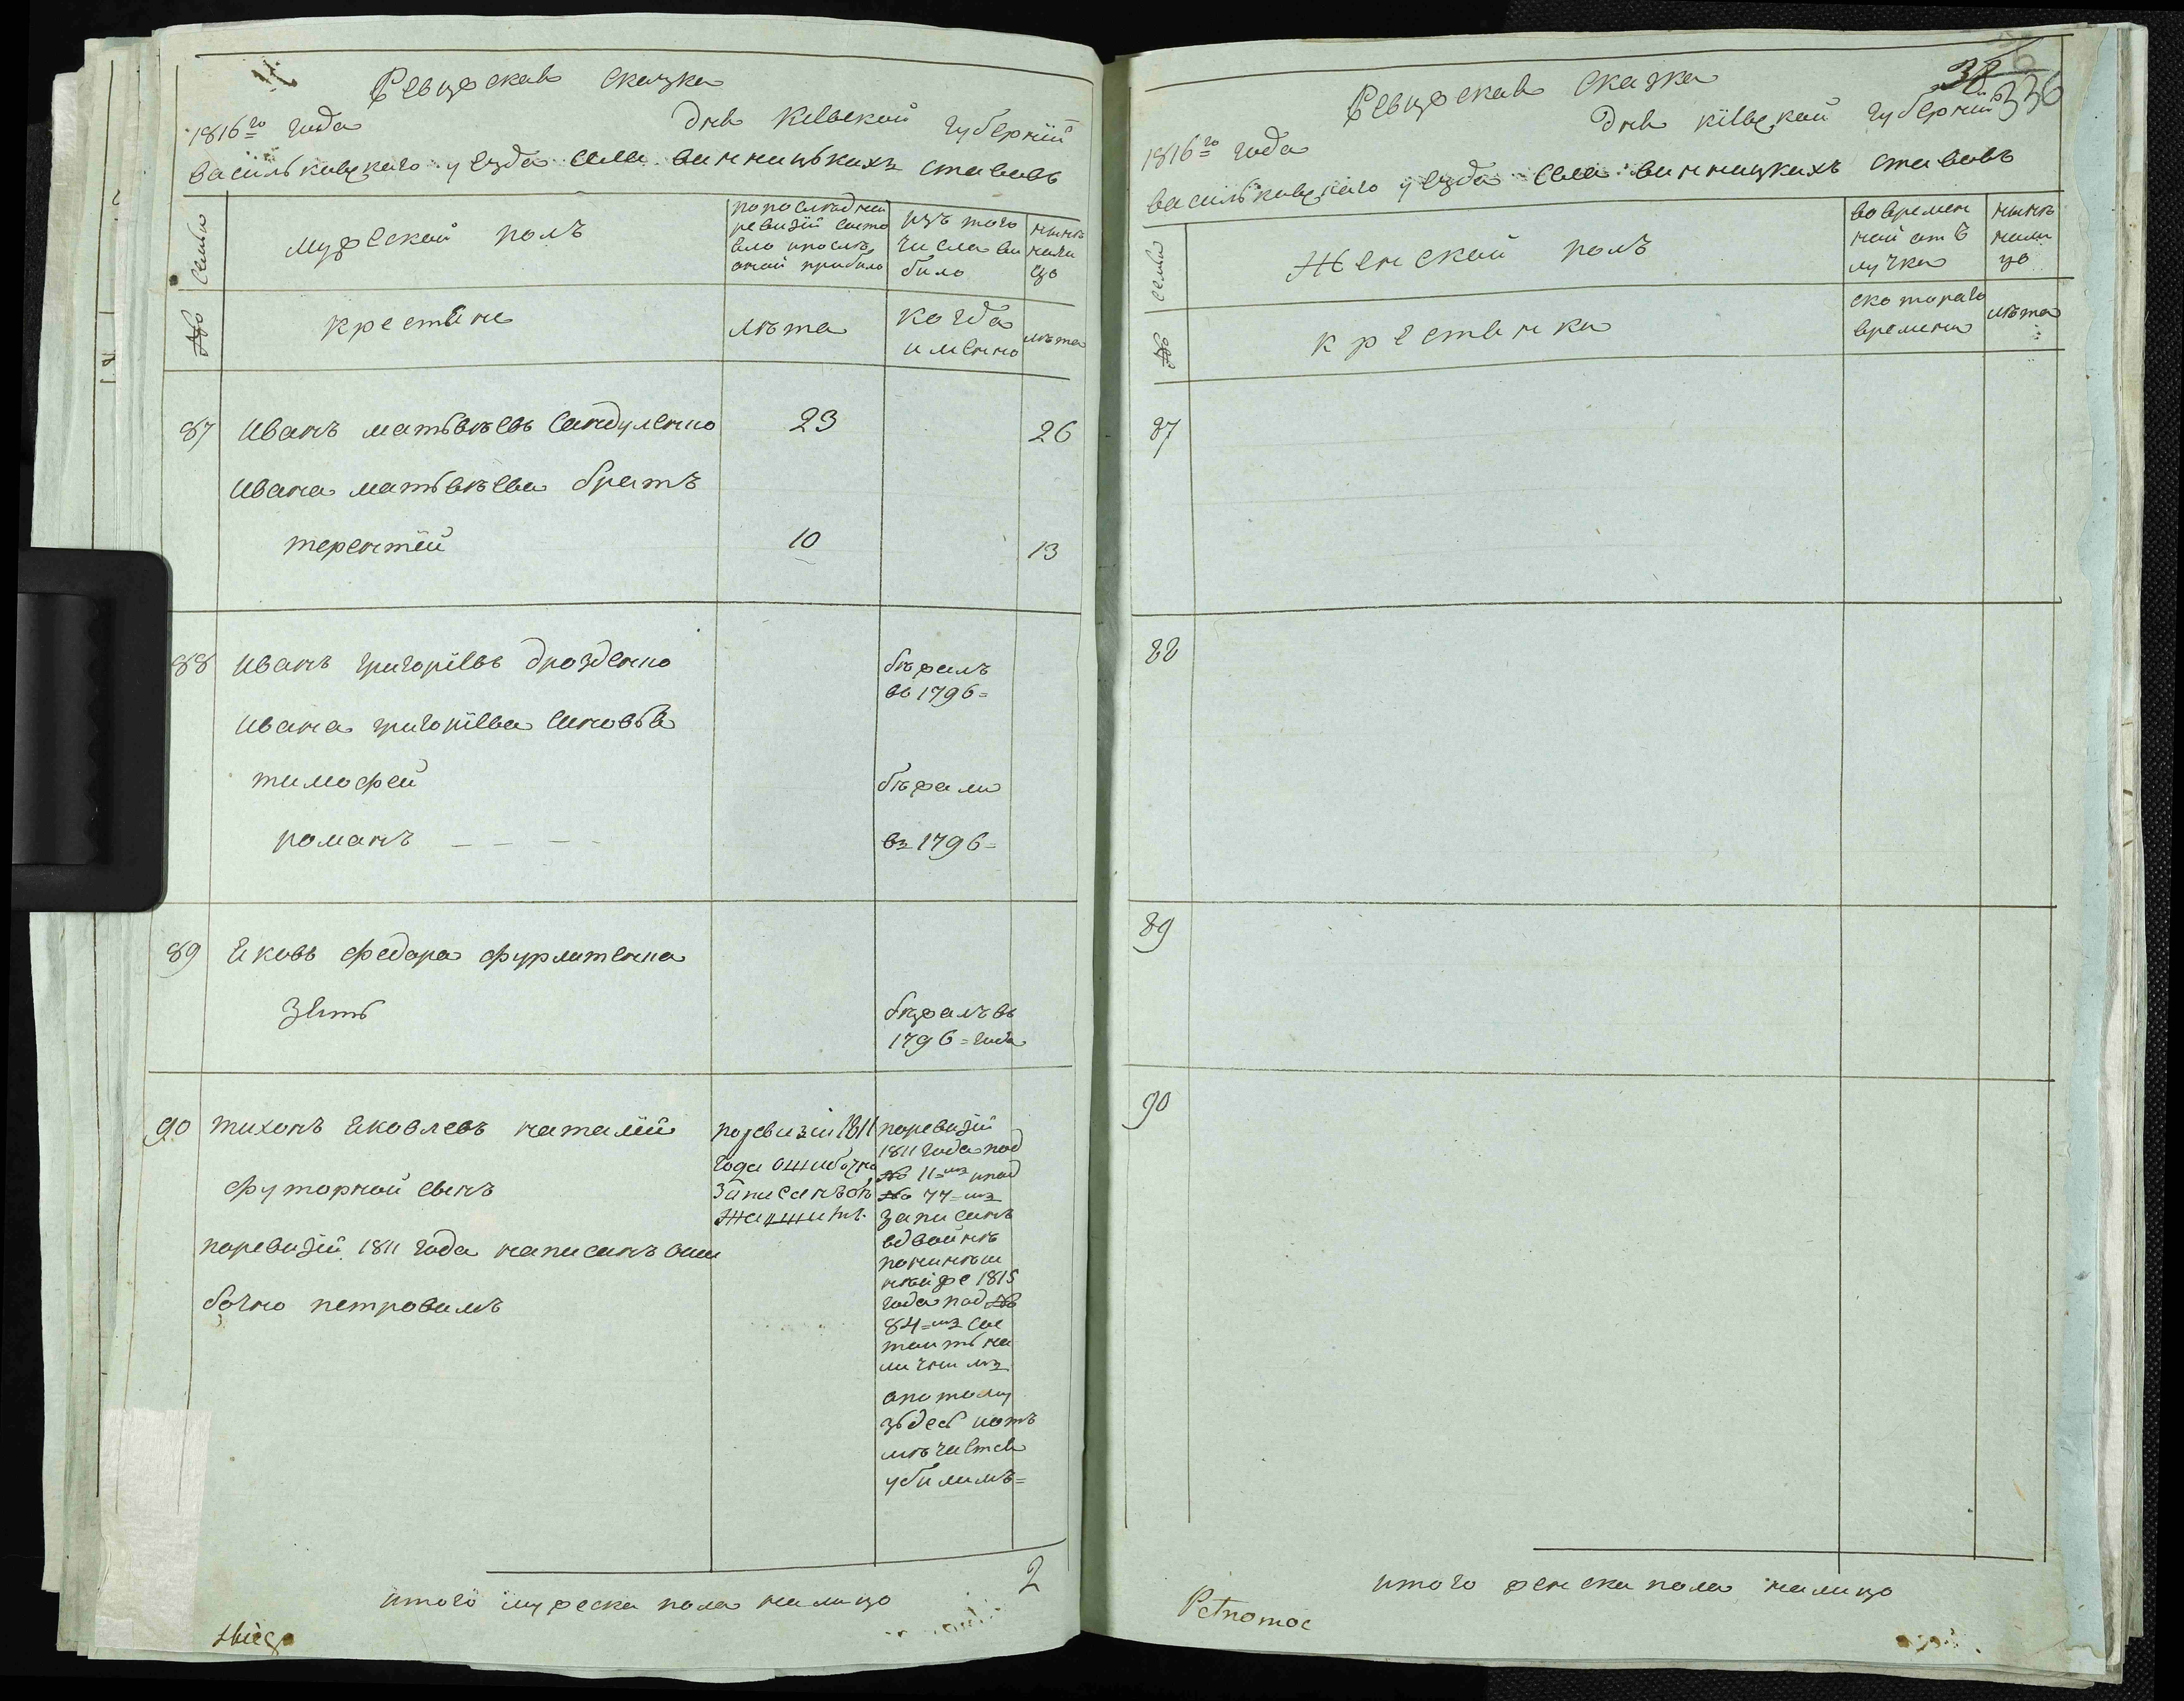 Ревизская сказка
1816го года
Дня Киевской губернии
васильковского уезда села винницькихъ ставовъ
семьи
мужеской полъ
по последней ревизии состояло и после оной прибыло
изъ того числа выбыло
ныне налицо
№
крестяне
лѣта
когда имянно
лѣта
87 Иванъ матьвѣевъ Сандуленко 23 26
Ивана матьвѣева братъ
терентий 10 13
88 Иванъ григориевъ дрозденко бѣжалъ
въ 1796=
Ивана григориева сыновья
тимофей бѣжали
романъ — — — въ 1796=
89 Яковъ федора фурлитенка
зять бѣжалъ въ
1796= года
90 тихонъ Яковлевъ наталий
футорной сынъ
поревизий 1811 года написанъ оши
бочно петровимъ
поревизии 1811
года ошибочно
записанъ
поревизий
1811 года под
№ 11=мъ и под
№ 77=мъ
записанъ
вдвойнѣ
по нинѣш
нѣй же 1815
года под №
84=мъ сос
тоить на
личнимъ
а по тому
зьдесь и от
мѣчается
убилимъ=
итого мужеска пола налицо 2
Ревизская сказка
38
336
1816го года
Дня киевской губернии
васильковского уезда села винницкихъ ставовъ
семьи
Женской полъ
во времен
ной отъ
лучки
нынѣ
нали
цо
№
крестянки
с котораго
времени
лѣта
87
88
89
90
итого женска пола налицо